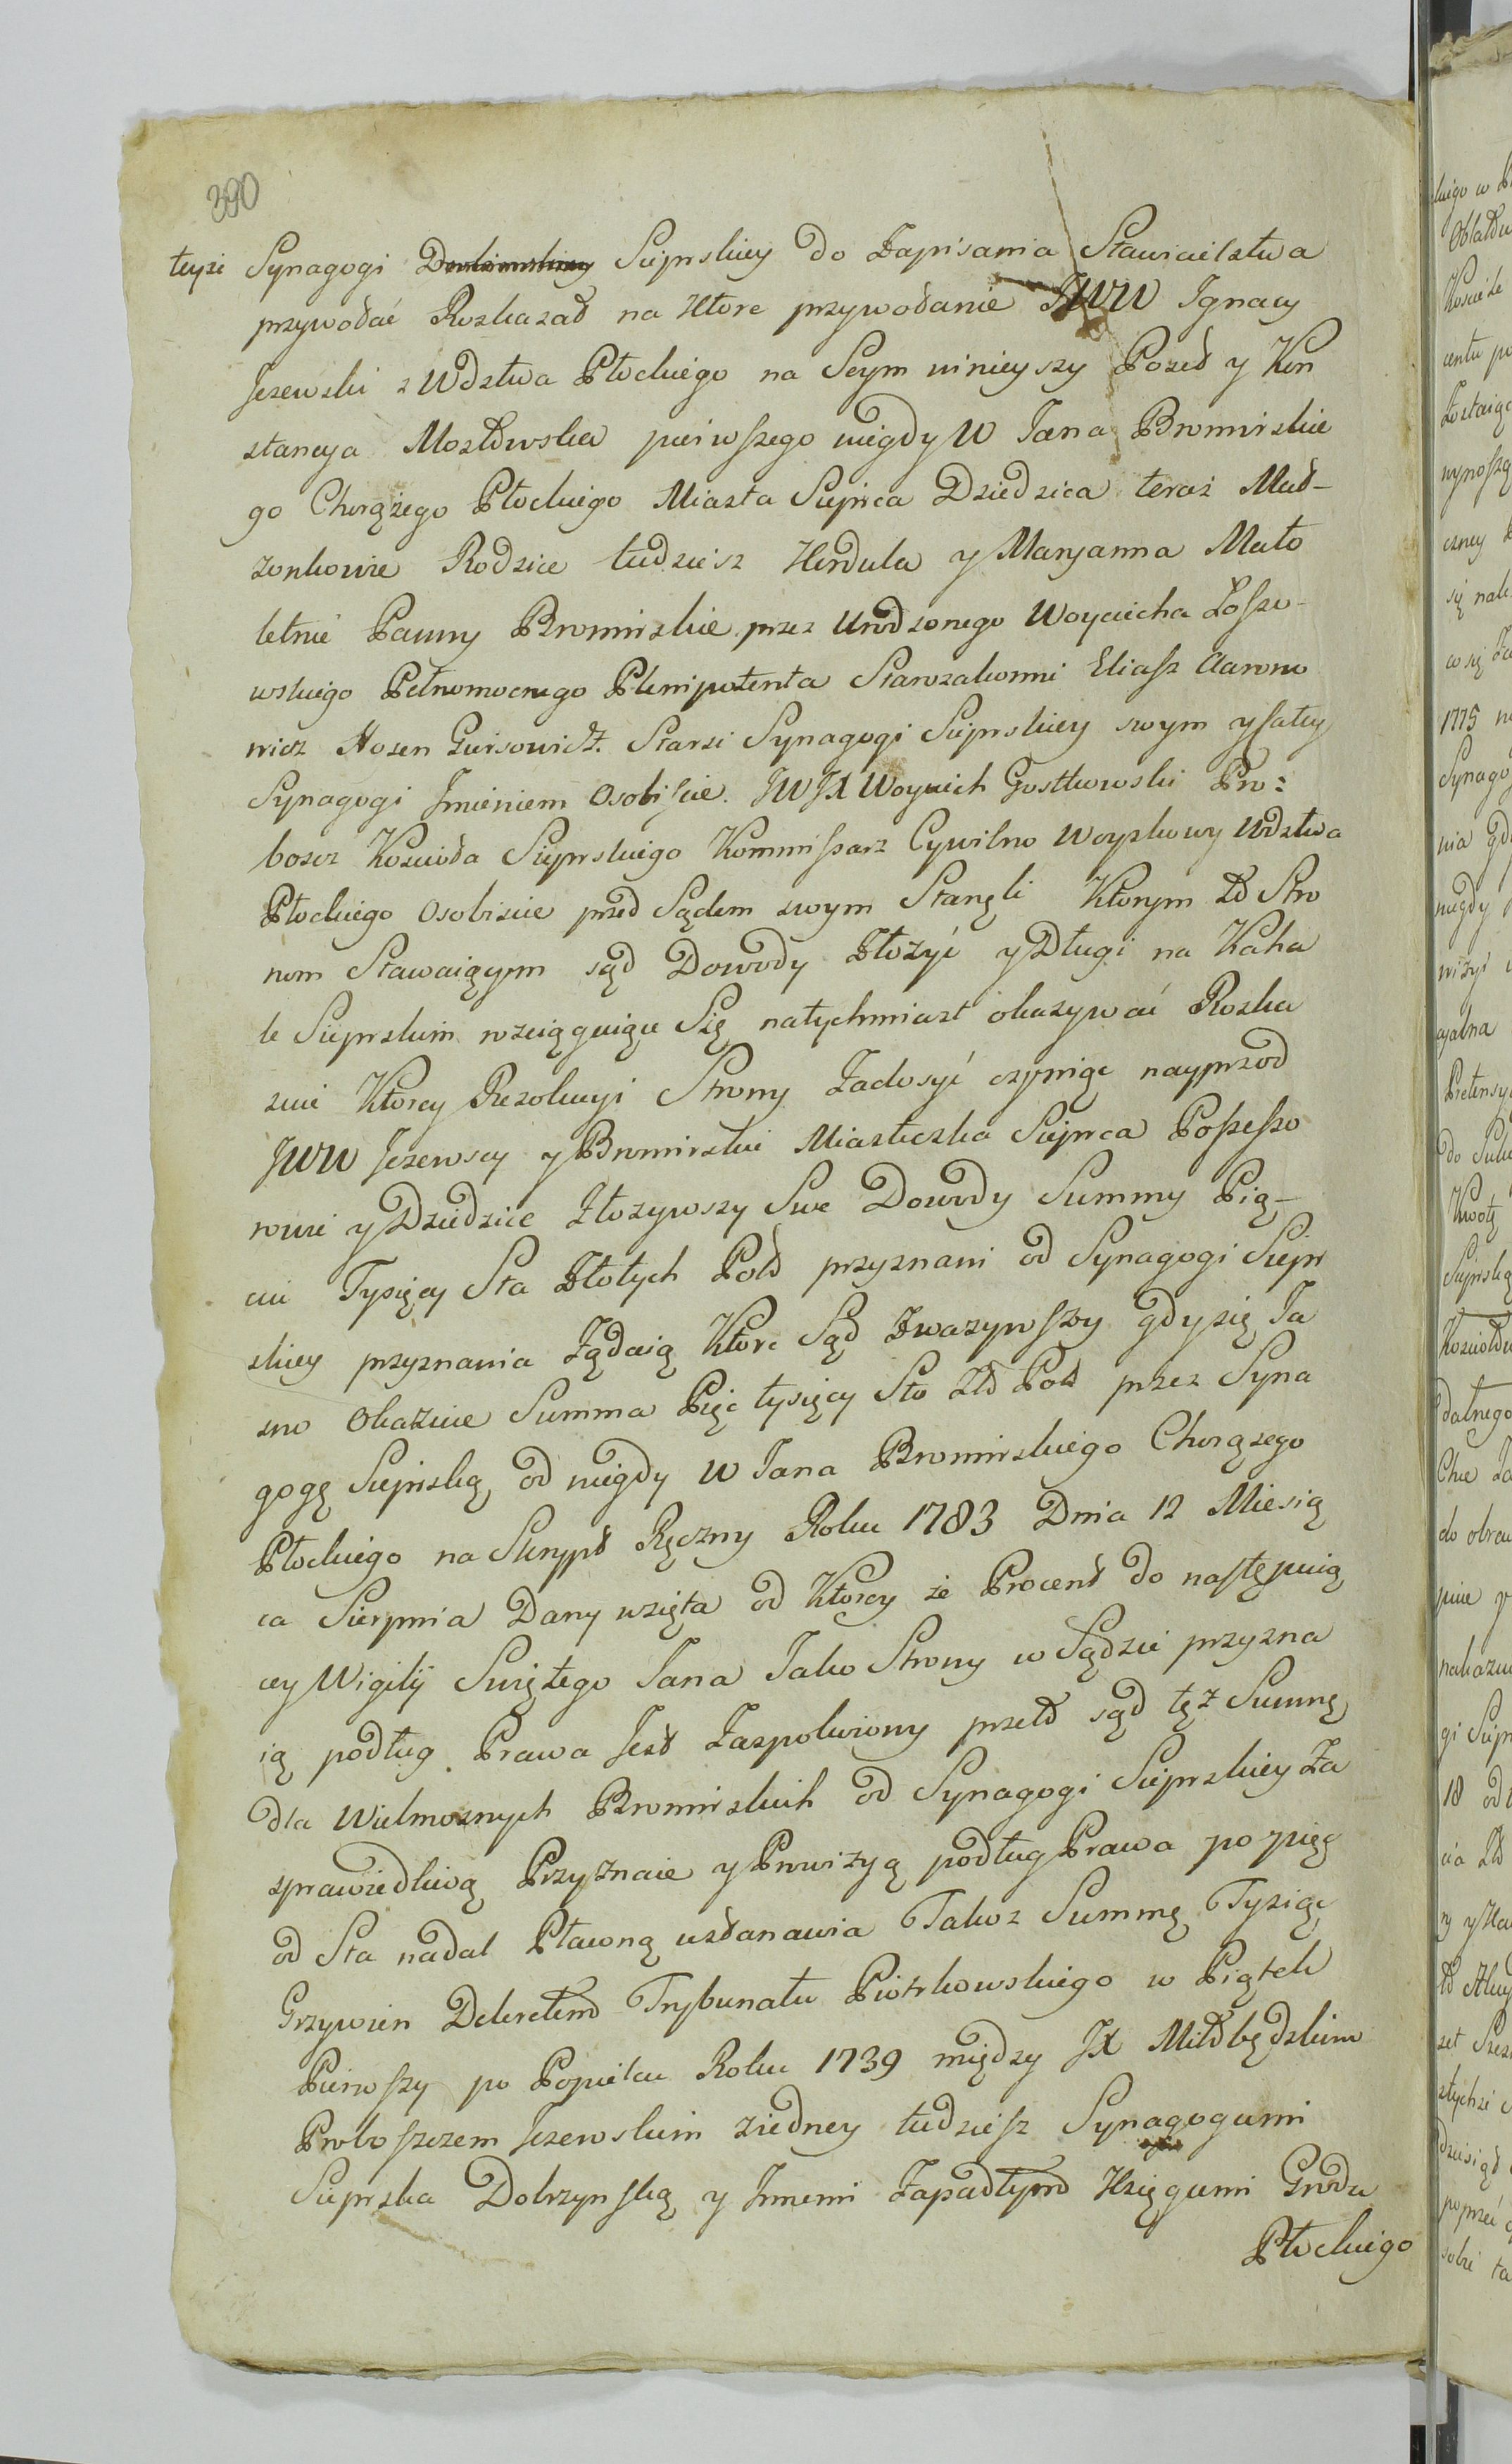 390
teyże Synagogi Sieprskiey do Zapisania Stawaielstwa
przywołać Rozkazał na Które przywołanie JWW Ignacy
Jezewski z Wdztwa Płockiego na Seym ninieyszy Poseł y Kon
stancya Mostowska pierwszego niegdy W Jana Bromirskie
go Chorążego Płockiego Miasta Sieprca Dziedzica teraz Mał-
zonkowie Rodzice tudziesz Herdula y Maryanna Mało
letnie Panny Bromirskie przez Urodzonego Woyciecha Zosso-
wskiego Pełnomocnego Plenipotenta Starozakonni Eliasz Aarono
wicz Hosen Gursowicz. Starsi Synagogi Sieprskiey swym y całey
Synagogi Jmieniem Osobiscie. JWJX Woyciech Gostkowski Pro:
boscz Kościoła Sieprskiego Kommissarz Cywilno Woyskowy Wdztwa
Płockiego Osobiscie przed Sądem swym Stanęli Ktorym Zd Stro
nom Stawaiącym sąd Dowody Złożyć y Długi na Kaha
le Sieprskim rozciągaiące Się natychmiast okazywać Roska
zuie Ktorey Rezolucyi Strony Zadosyć czyniąc nayprzod
JWW Jezewscy y Bromirskie Miasteczka Sieprca Possesso
rowie y Dziedzice Złozywszy Swe Dowody Summy Pię-
ciu Tysięcy Sta Złotych Pols przyznani od Synagogi Siepr
skiey przyznania Ządaią Które Sąd Zwazywszy gdy się Ja
sno Okazuie Summa Pięc tysięcy Sto Złł Pols przez Syna
gogę Sieprską od niegdy W Jana Bromirskiego Chorązego
Płockiego na Skrypt Ręczny Roku 1783 Dnia 12 Miesią
ca Sierpnia Dany wzięta od Ktorey że Procent do następuią
cey Wigilij Swiętego Jana Jako Strony w Sądzie przyzna
ią podług Prawa Jest Zaspokoiony przeto sąd tęż Summę
dla Wielmoznych Bromirskich od Synagogi Sieprskiey Za
sprawiedliwą Przyznaie y Prowizyą podług Prawa po pięć
od Sta nadal Płacną ustanawia Takoz Summę Tysiąc
Grzywien Dekretem Trybunału Piotrkowskiego w Piątek
Pierwszy po Popielcu Roku 1739 między JX Miłobędzkim
Proboszczem Jezewskim ziedney tudziesz Synagogami
Sieprska Dobrzynską y Innemi Zapadłym Xięgami Grodu
Płockiego